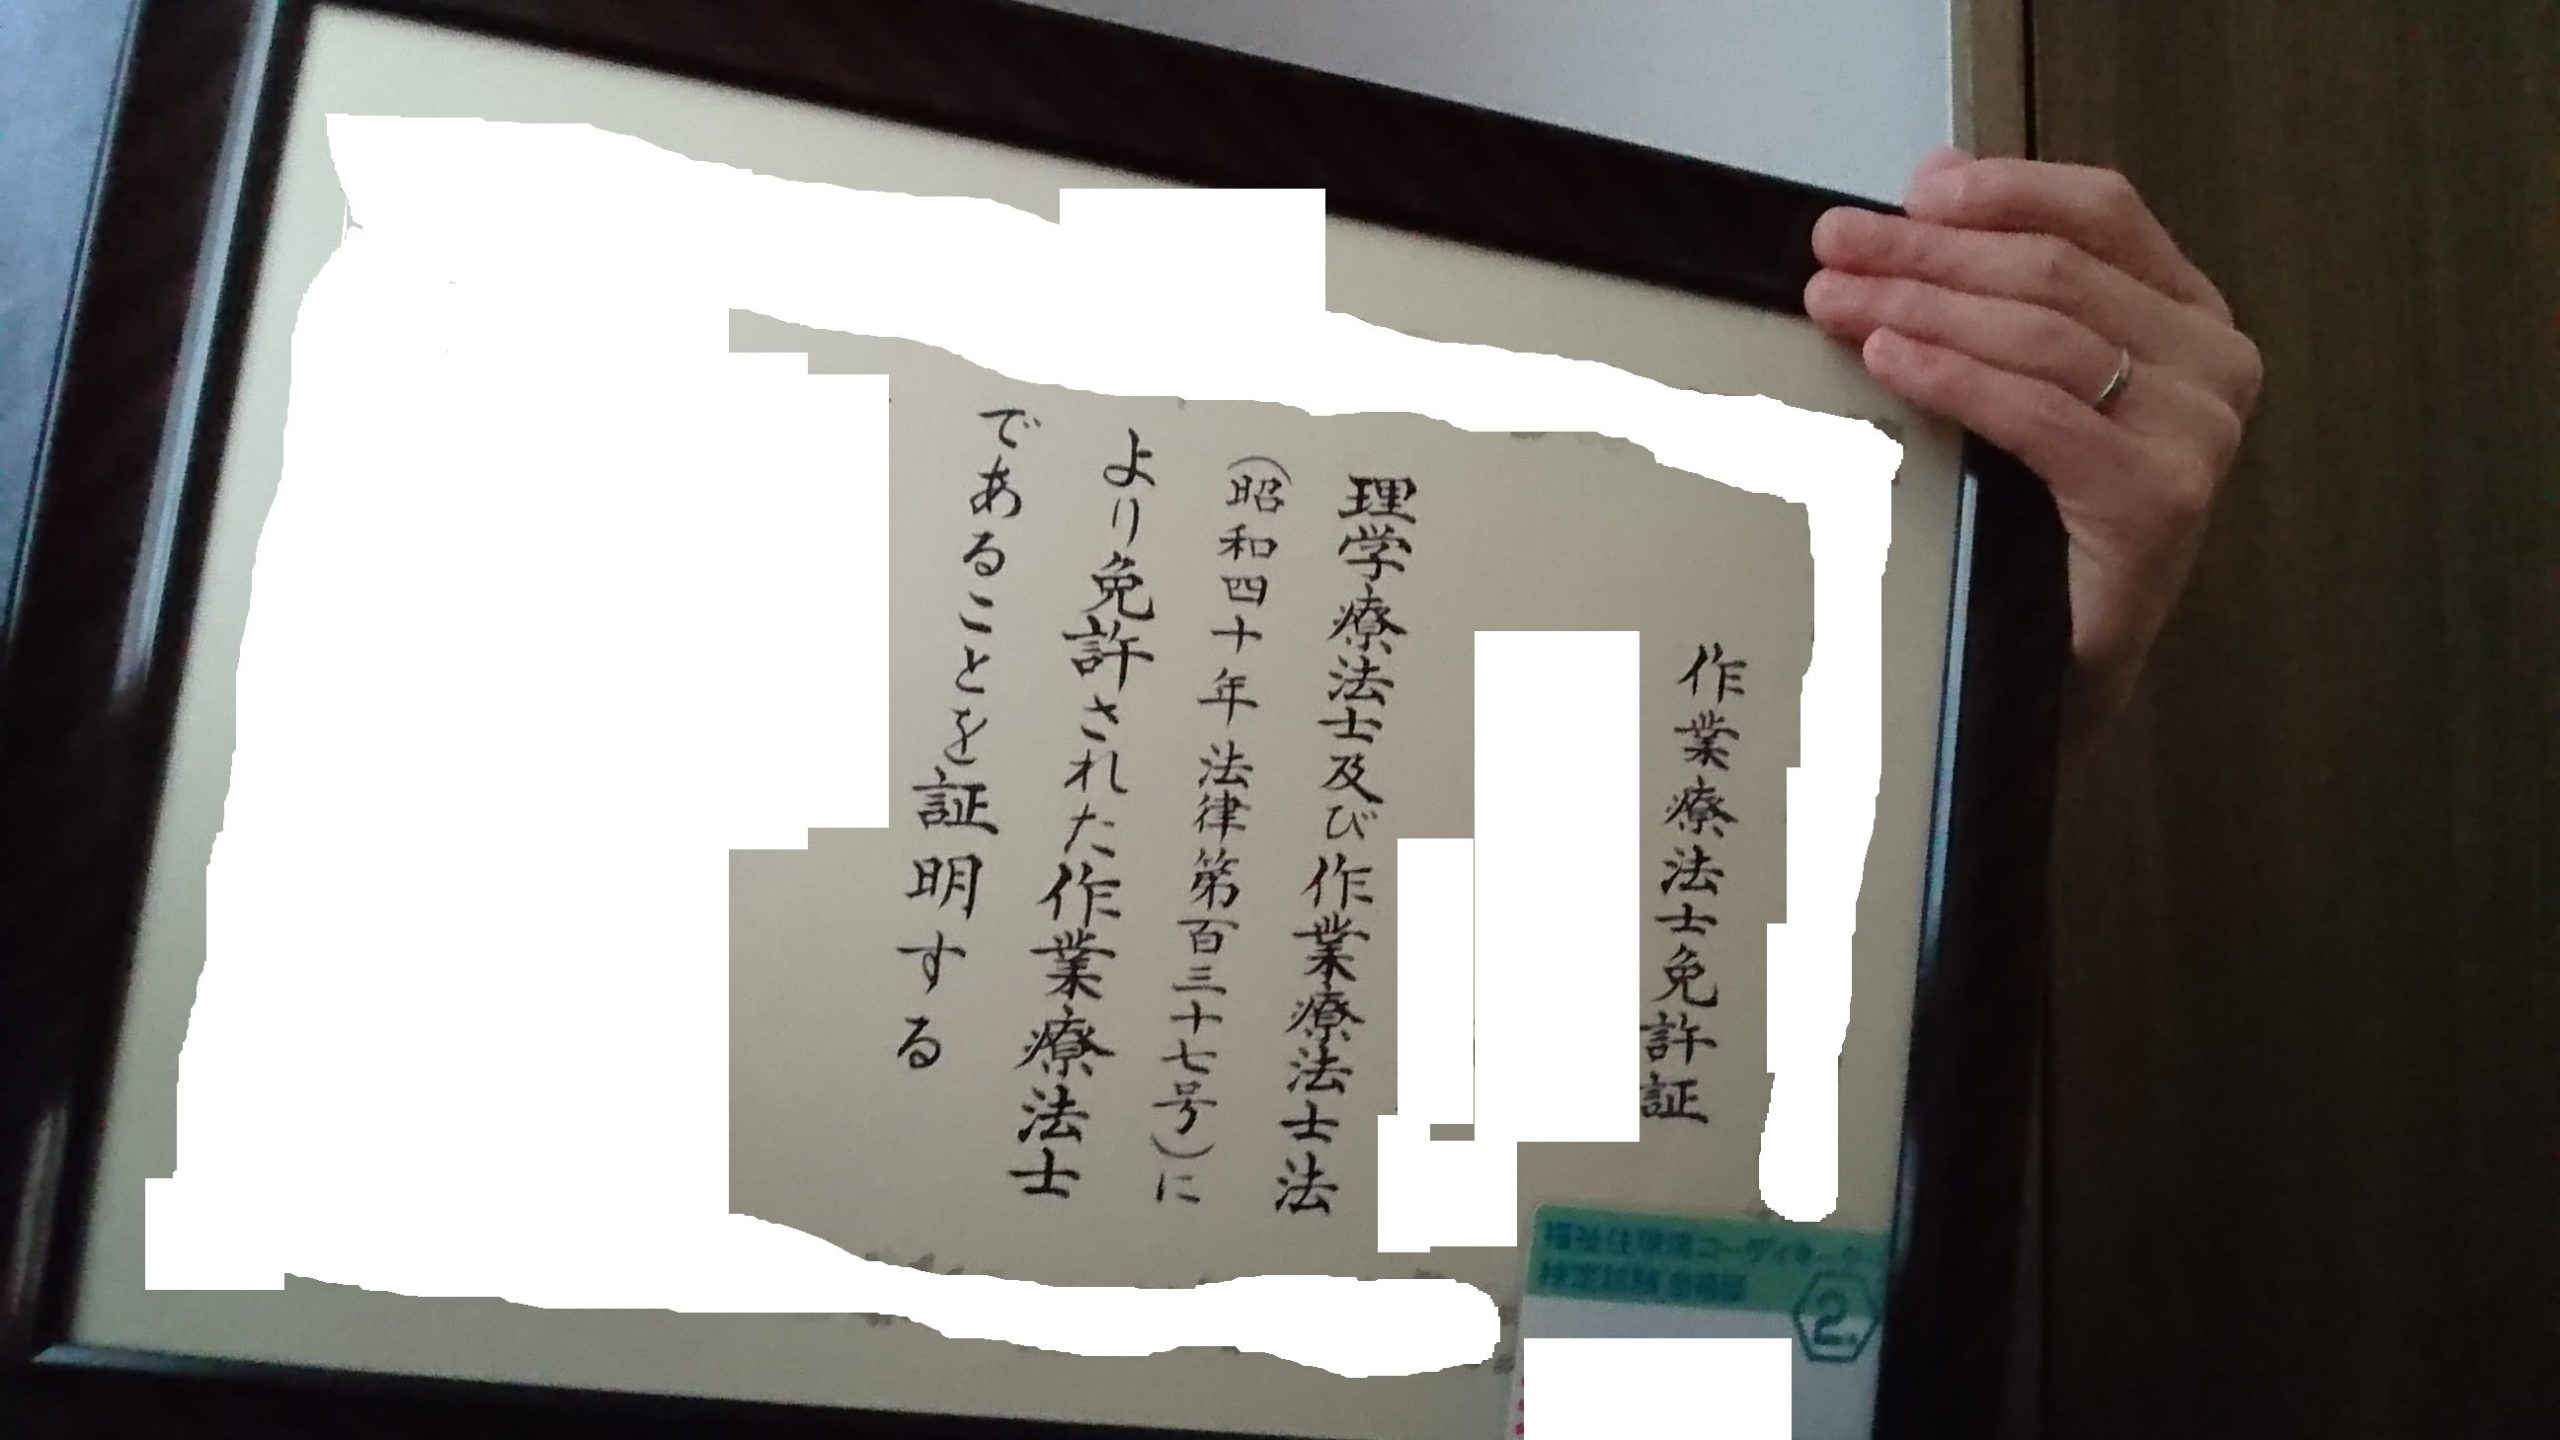 作業療法士免許証
理学療法士及び作業療法士法
(昭和四十年法律第百三十七号)に
より免許された作業療法士
であることを証明する
福祉住環境コーディネーター
検定試験合格証
2